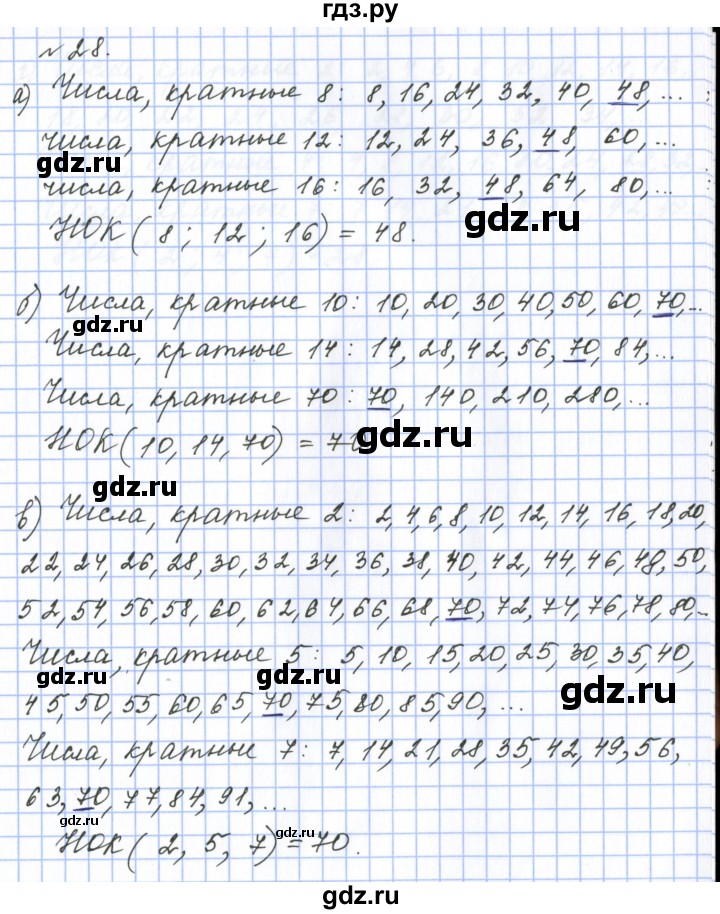 гдз.ру
№28.
а) Числа, кратные 8: 8, 16, 24, 32, 40, 48, ...
числа, кратные 12: 12, 24, 36, 48, 60, ...
gdz.ru
числа, кратные 16: 16, 32, 48, 64, 80, ...
gdz.ru
НОК(8; 12; 16) = 48.
б) Числа, кратные 10: 10, 20, 30, 40, 50, 60, 70, ...
gdz.ru
gdz.ru
Числа, кратные 14: 14, 28, 42, 56, 70, 84, ...
Числа, кратные 70: 70, 140, 210, 280, ...
НОК(10, 14, 70) = 70
gdz.ru
gdz.ru
в) Числа, кратные 2: 2, 4, 6, 8, 10, 12, 14, 16, 18, 20,
22, 24, 26, 28, 30, 32, 34, 36, 38, 40, 42, 44, 46, 48, 50,
52, 54, 56, 58, 60, 62, 64, 66, 68, 70, 72, 74, 76, 78, 80, ...
Числа, кратные 5: 5, 10, 15, 20, 25, 30, 35, 40,
gdz.ru
gdz.ru
gdz.ru
45, 50, 55, 60, 65, 70, 75, 80, 85, 90, ...
Числа, кратные 7: 7, 14, 21, 28, 35, 42, 49, 56,
63, 70, 77, 84, 91, ...
gdz.ru
НОК(2, 5, 7) = 70.
gdz.ru